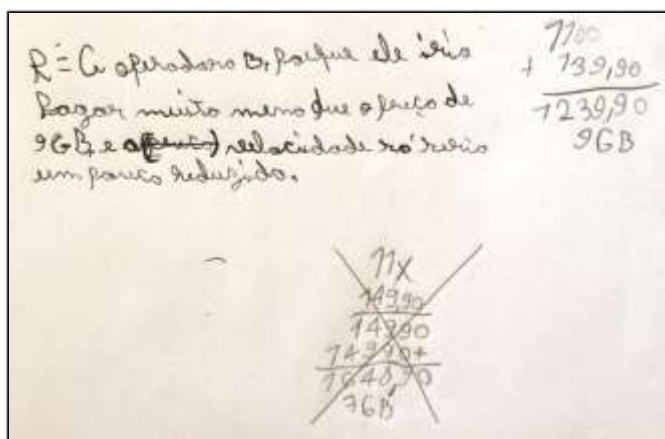 R= A operadora B, porque ele iria
pagar muito meno que o preço de
9GB, e a velocidade só seria
um pouco reduzido.
1100
+ 139,90
1239,90
9GB
11X
149,90
14990
14990+
1648,90
7GB